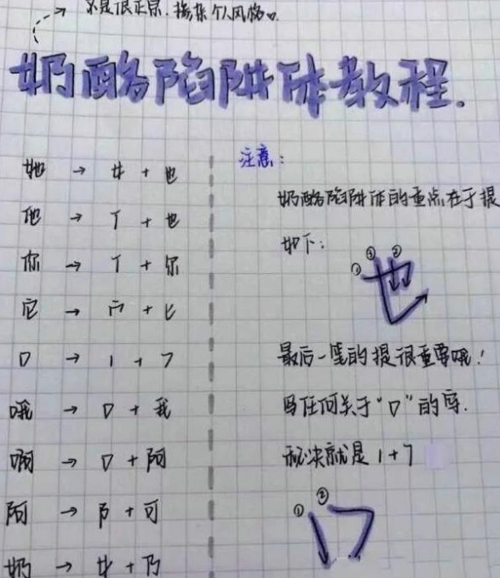 不是很正宗，掺杂个人风格。
奶酪陷阱体教程.
她 → 女 + 也
他 → 亻 + 也
你 → 亻 + 尔
它 → 宀 + 匕
口 → 1 + 7
哦 → 口 + 我
啊 → 口 + 阿
阿 → 阝 + 可
奶 → 女 + 乃
注意：
奶酪陷阱体的重点在于提
如下：
① ① ②
也
最后一笔的提很重要哦！
写任何关于“口”的字.
秘决就是 1 + 7
① ②